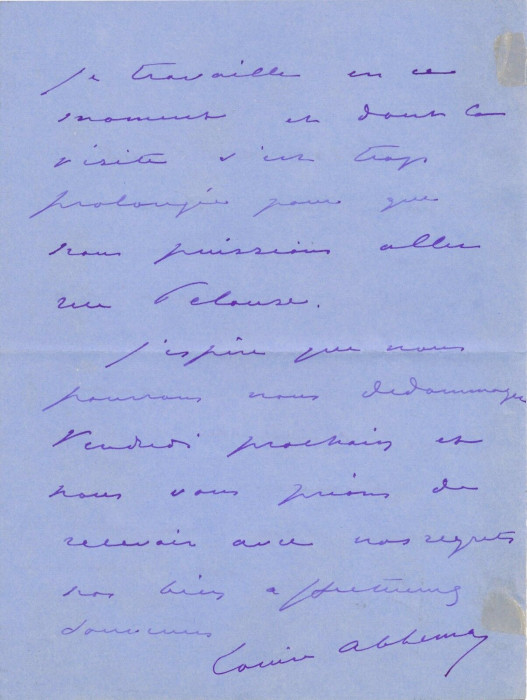 je travaille en ce
moment et dont la
visite s'est trop
prolongée pour que
nous puissions aller
rue Velouse.
J'espère que nous
pourrons nous dedommager
Vendredi prochain et
nous vous prions de
recevoir avec nos regrets
nos bien affectueux
souvenirs
Louise Abbema